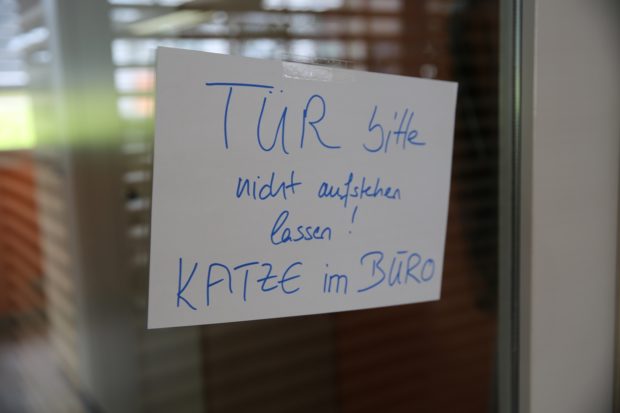 TÜR bitte
nicht aufstehen
lassen!
KATZE im BÜRO